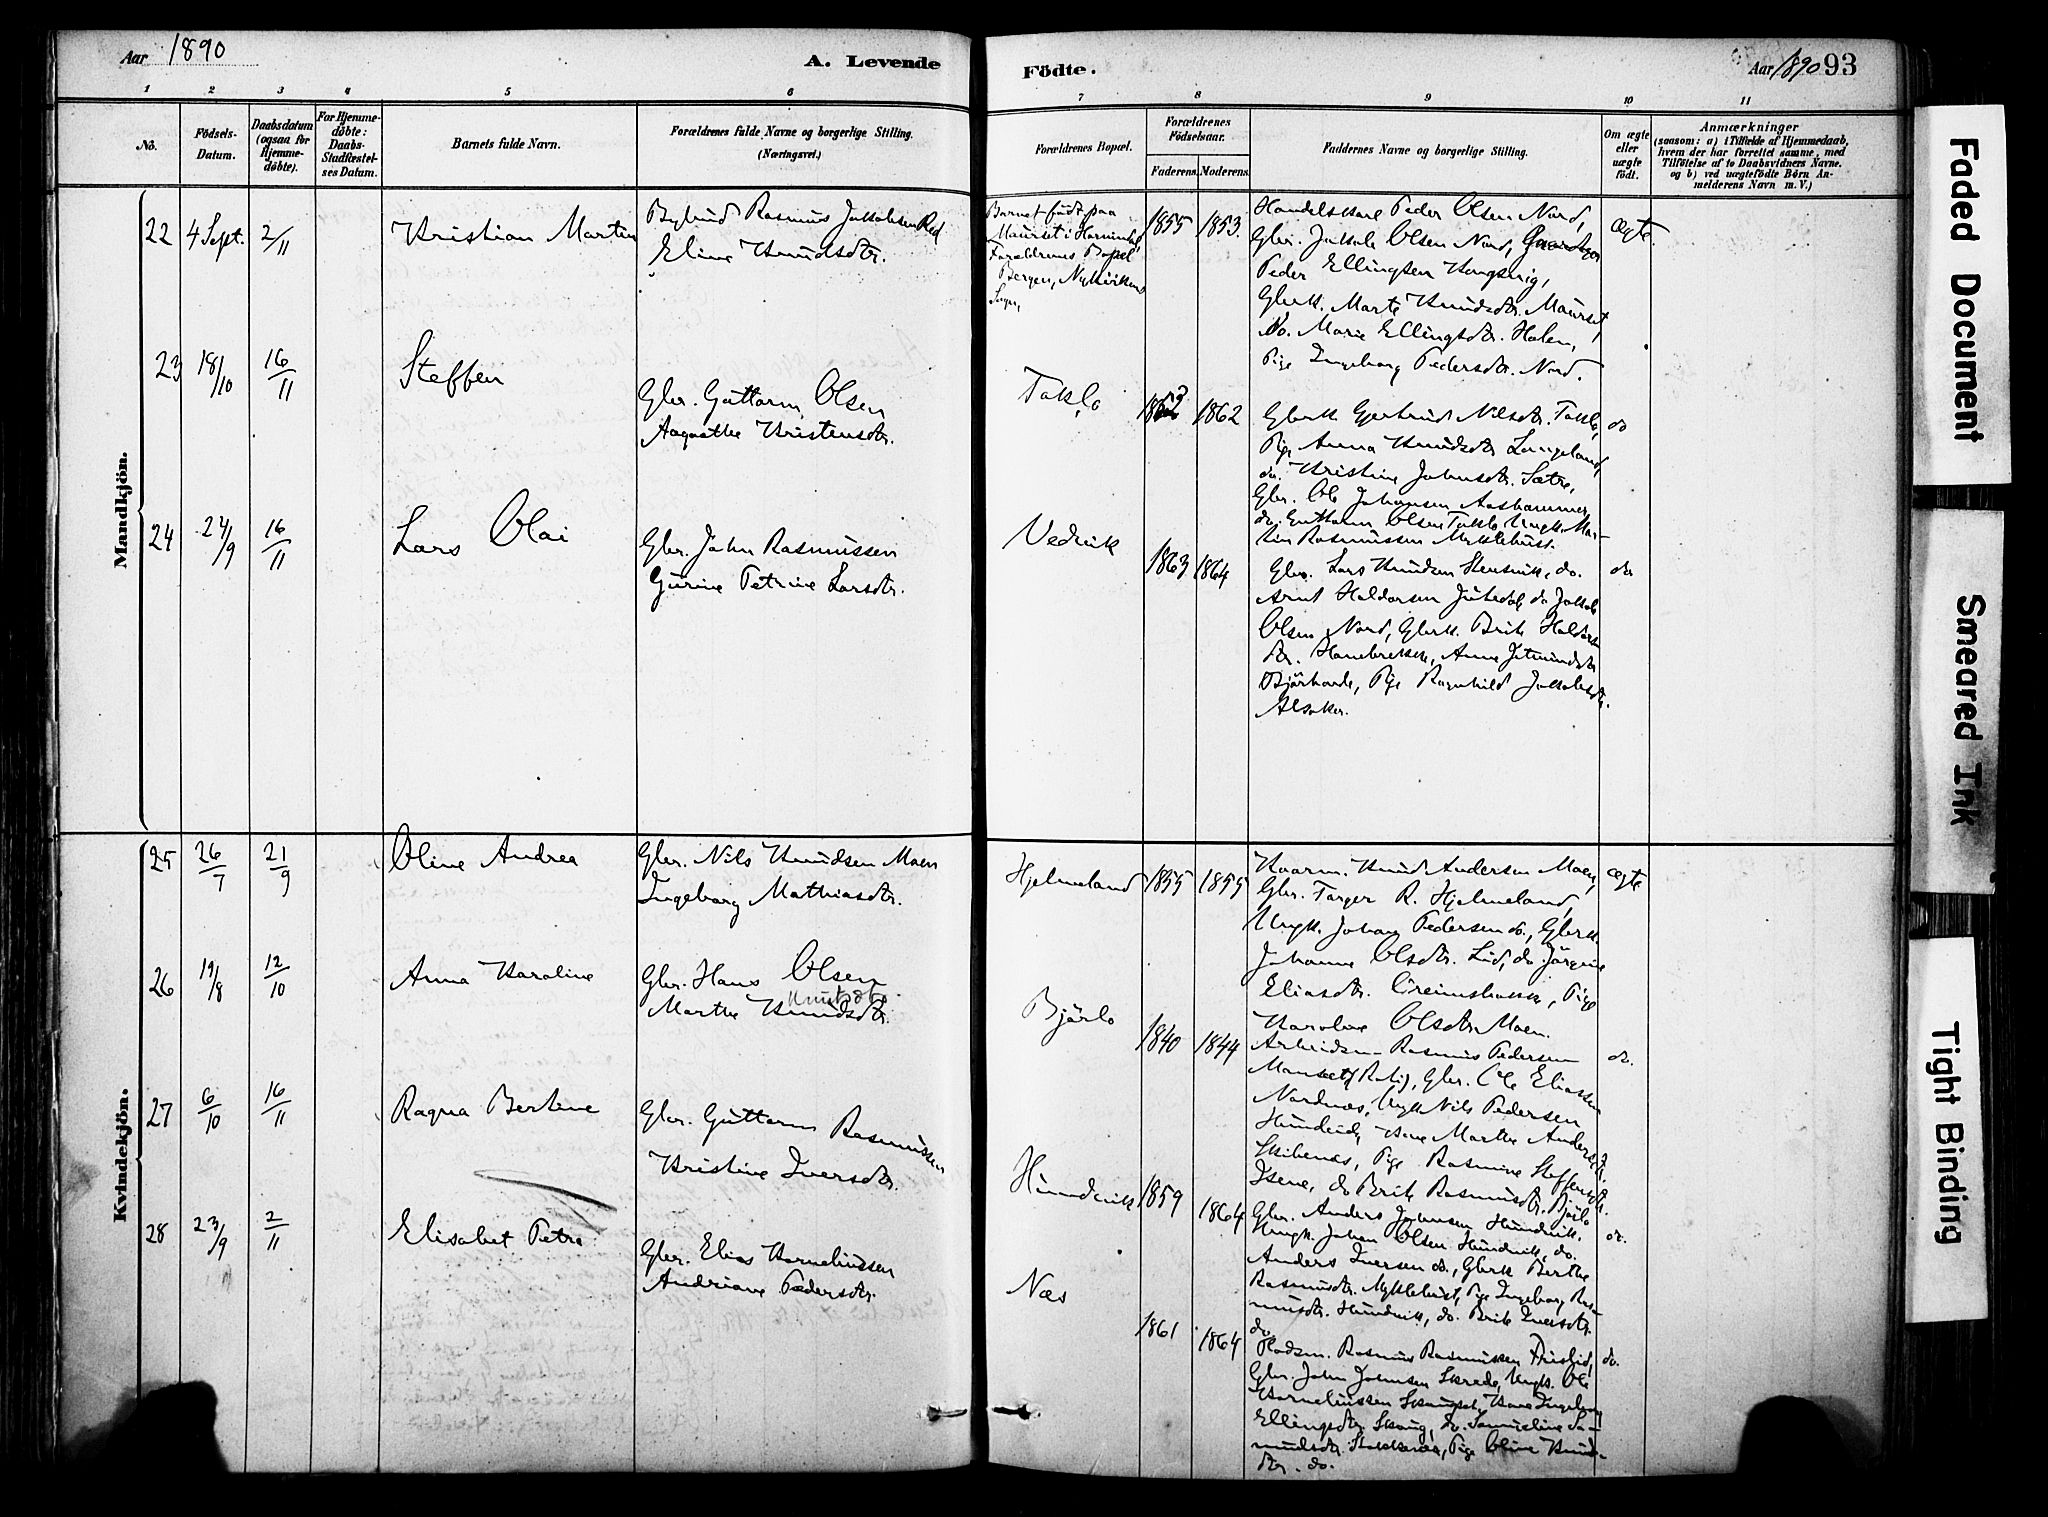 Aar 1890
A. Levende
Födte.
Aar 1890 93
1 2 3 4 5 6 7 8 9 10 11
No.
Födsels-
Datum.
Daabsdatum
(ogsaa for
Hjemme-
døbte).
For Hjemme-
döbte:
Daabs-
Stadfæstel-
ses Datum.
Barnets fulde Navn.
Forældrenes fulde Navne og borgerlige Stilling.
(Næringsvei.)
Forældrenes Bopæl.
Forældrenes
Födselsaar.
Faderens. Moderens.
Faddernes Navne og borgerlige Stilling.
Om ægte
eller
uægte
født.
Anmærkninger
(saasom: a) i Tilfælde af Hjemmedaab,
hvem der har forrettet samme, med
Tilföielse af to Daabsvidners Navne.
og b) ved uægtefödte Börn An-
melderens Navn m. V.)
Mandkjön.
22 4 Sept. 2/11
Kristian Martin
Rasmus Jakobsen
Eline Knudsdtr.
Barnet födt paa
Maurset i Hornindal,
Forældrenes Bopæl
Bergen,
1855 1853.
Peder Olsen Nord,
Gbr. Jakob Olsen Nord,
Peder Ellingsen
Gbrk. Marte Knudsdtr. Maurset
do. Marie Ellingsdtr. Holen,
Pige Ingeborg Pedersdtr. Nord.
ægte.
23 18/10 16/11
Steffen
Gbr. Guttorm Olsen
Kristensdtr.
Taklo
1862
Gbrk Gjertrud Nilsdtr. Taklo,
Pige Anna Knudsdtr Langeland,
do. Kristine Johnsdtr. Sætre,
Gbr. Ole Johansen Aashammer,
do. Guttorm Olsen Taklo, Ungk. Mar-
tin Rasmussen Myklebust.
do
24 24/9 16/11
Lars Olai
Gbr. John Rasmussen
Gurine Petrine Larsdtr.
Vedvik
1863 1864
Gbr. Lars Knudsen do.
Arnt Haldorsen do Jakob
Olsen Nord, Gbrk. Brite Haldors
dtr. Anne
Pige Ragnhild Jakobsdtr.
Alsaker.
do
Kvindekjön.
25 26/7 21/9
Oline Andrea
Gbr. Nils Knudsen Moen
Ingeborg Mathiasdtr.
Hjelmeland
1855 1855
Kaarm. Knud Andersen Moen,
Gbr. Torger R. Hjelmeland,
Ungk. Johan Pedersen do., Gbrk.
Johanne Olsdtr. Lid, do. Jörgine
Eliasdtr. Pige
Karoline Olsdtr. Moen.
ægte
26 19/8 12/10
Anna Karoline
Gbr. Hans Olsen
Knutsdtr.
Marthe Knudsdtr.
Bjórlo
1840 1844
Rasmus Pedersen
Gbr. Ole Eliassen
Nordnæs, Ungk Nils Pedersen
Hundvik, Kone Marthe Andersdtr.
Skibenæs, Pige Rasmine Steffensdtr.
Isene, do Brite Rasmusdtr. Bjórlo
do.
27 6/10 16/11
Ragna Bertine
Gbr. Guttorm Rasmussen
Kristine Iversdtr.
Hundvik
1859 1864
Gbr. Anders Johnsen Hundvik.
Ungk. Johan Olsen Hundvik, do.
Anders Iversen do., Gbrk Berthe
Rasmusdtr. Myklebust, Pige Ingeborg Ras-
musdtr. Hundvik, do. Brite Iversdtr.
do.
do.
28 23/9 2/11
Elisabet Petra
Gbr. Elias Kornelinssen
Andriane Pedersdtr.
Næs
1861 1864
Pladsm. Rasmus Rasmussen
Gbr. John Johnsen Skrede, Ungk. Ole
Korneliussen Kone Ingeborg
Ellingsdtr. Skaug, do. Samueline Sa-
muelsdtr. Pige Oline Knuds-
dtr. do.
do.
Faded Document
Smeared Ink
Tight Binding